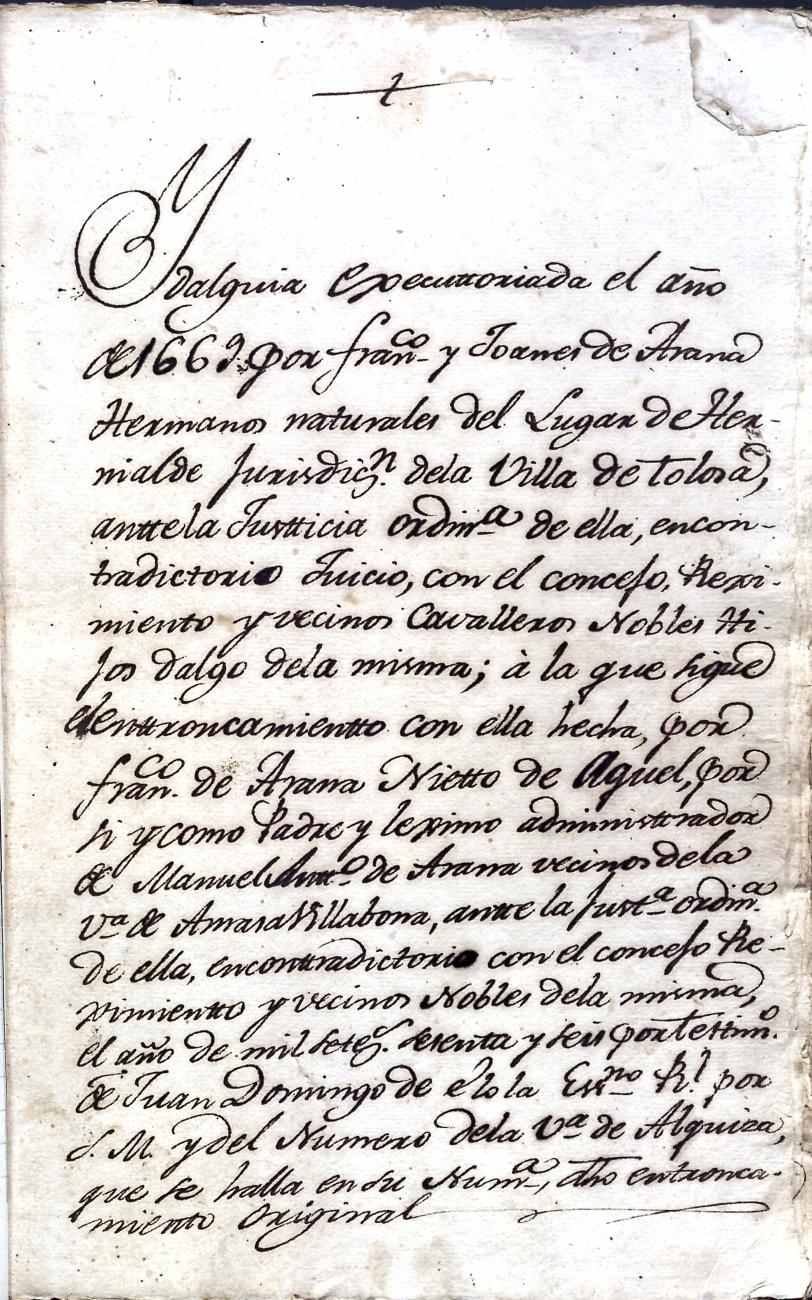 Ydalguia executtoriada el año
de 1669. por fran.co y Joanes de Arana
Hermanos naturales del Lugar de Her-
nialde Jurisdiz.n dela Villa de Tolosa,
antte la Justticia ordin.a de ella, encon-
tradictorio Juicio, con el concejo, Rexi-
miento y vecinos Cavalleros Nobles Hi-
jos dalgo dela misma; à la que sigue
el enttroncamientto con ella hecha, por
fran.co de Arana Nietto de Aquel, por
si y como Padre y lexximo administtrador
de Manuel Antt.o de Arana vecinos de la
V.a de Amasa Villabona, antte la Just.a ordin.a
de ella, encontradictorio con el concejo Re-
ximientto y vecinos Nobles dela misma,
el año de mil setez.s sesenta y seis por testtim.o
de Juan Domingo de el Ess.no R.l por
S. M. y del Numero dela V.a de Alquiza,
que se halla en su Num.a, dho entronca-
miento Original